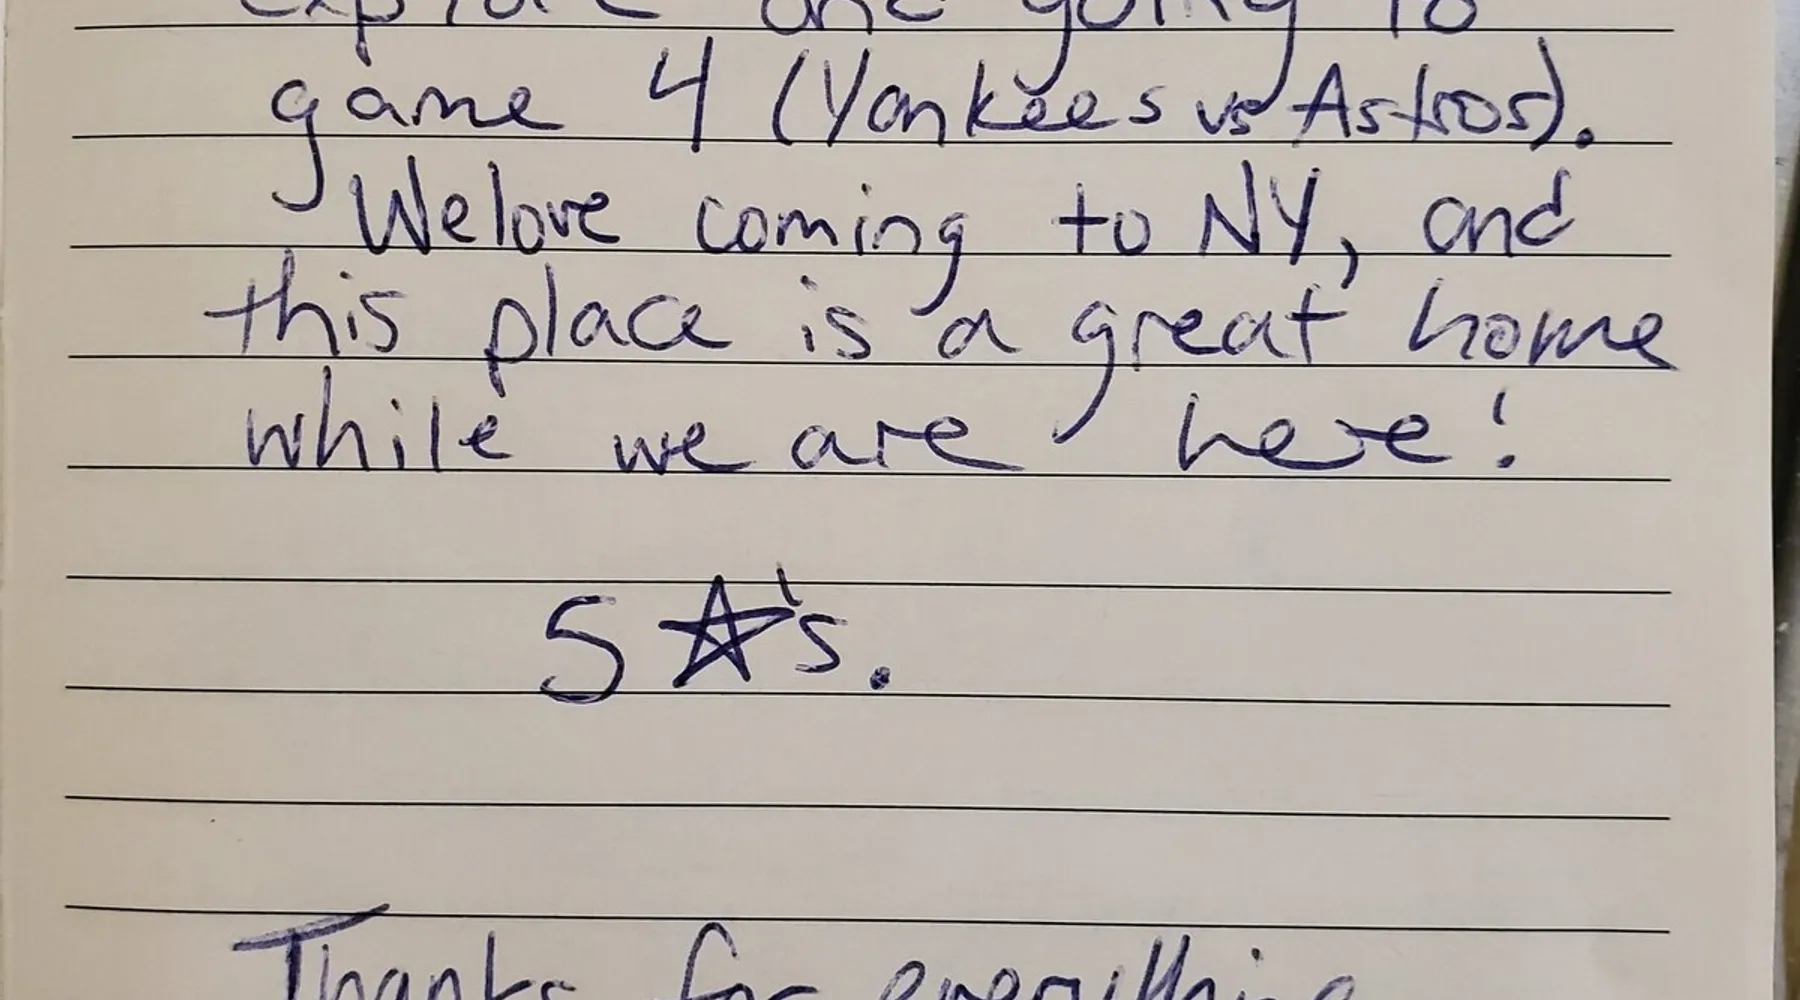 explore and going to
game 4 (Yankees vs Astros).
We love coming to NY, and
this place is a great home
while we are here!
5 ☆'s.
Thanks for everything